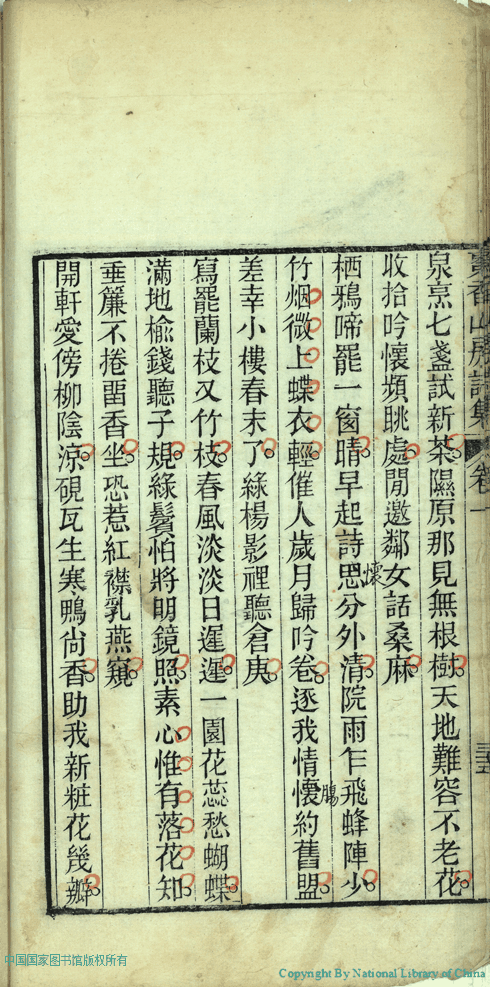 香山房詩集 卷一
泉烹七盞試新茶隰原那見無根樹天地難容不老花
收拾吟懷頻眺處閒邀鄰女話桑麻
栖鴉啼罷一窗晴早起詩思分外清院雨乍飛蜂陣少
懷
竹烟微上蝶衣輕催人歲月歸吟卷逐我情懷約舊盟
腸
差幸小樓春末了綠楊影裡聽倉庚
寫罷蘭枝又竹枝春風淡淡日遲遲一園花蕊愁蝴蝶
滿地榆錢聽子規綠鬢怕將明鏡照素心惟有落花知
垂簾不捲畱香坐恐惹紅襟乳燕窺
開軒愛傍柳陰涼硯瓦生寒鴨尚香助我新粧花幾瓣
中国国家图书馆版权所有
Copyright By National Library of China